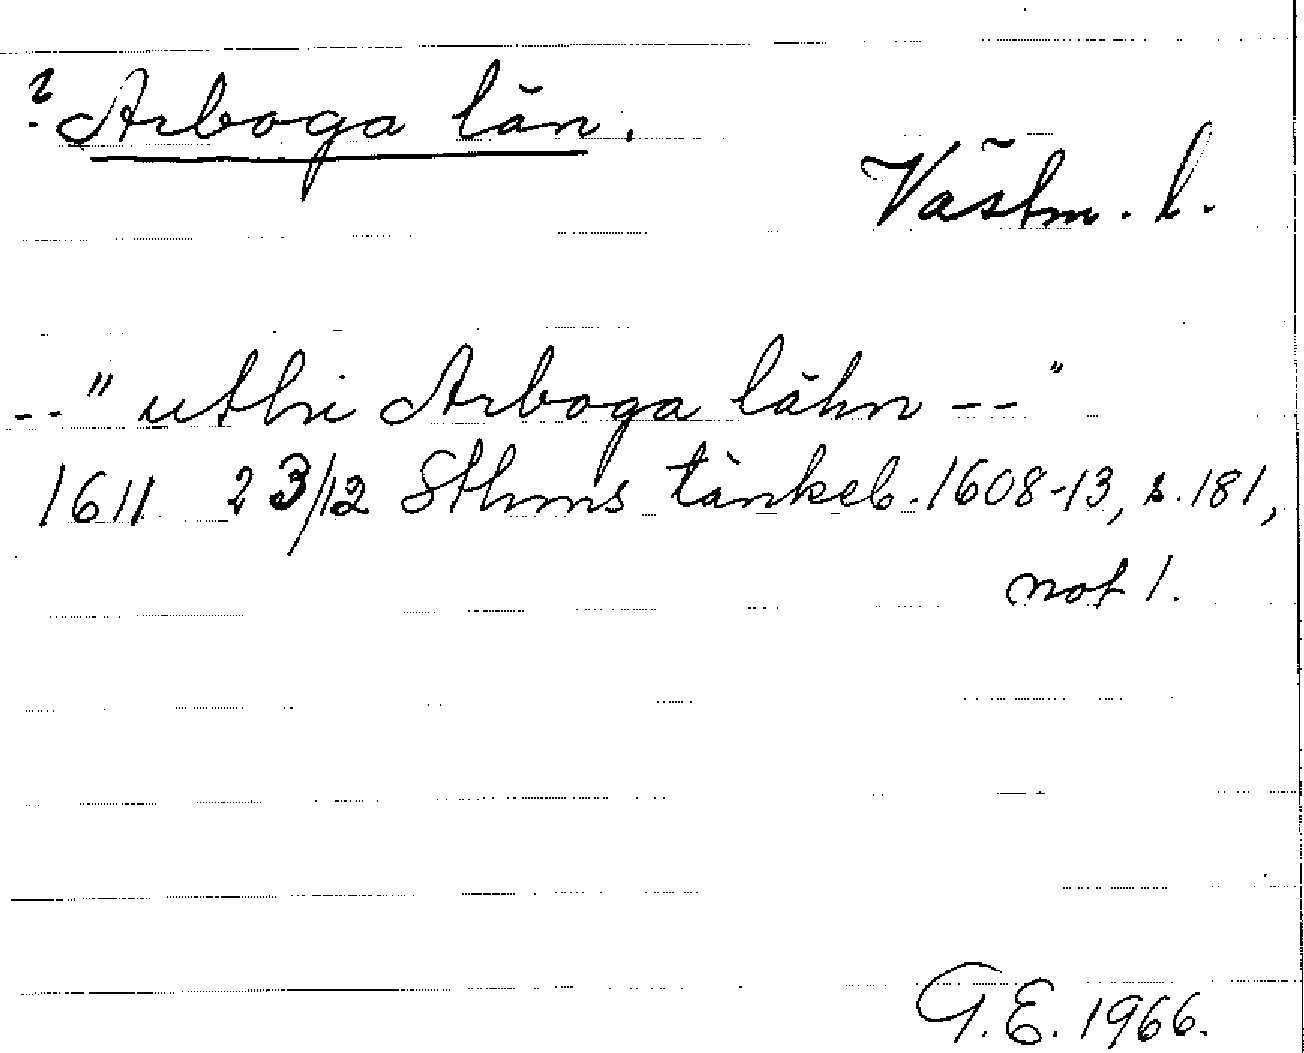 ? Arboga län.
Västm. l.
--" uthi Arboga lähn --"
1611 23/12 Sthms tänkeb. 1608-13, s. 181,
not 1.
G.E. 1966.